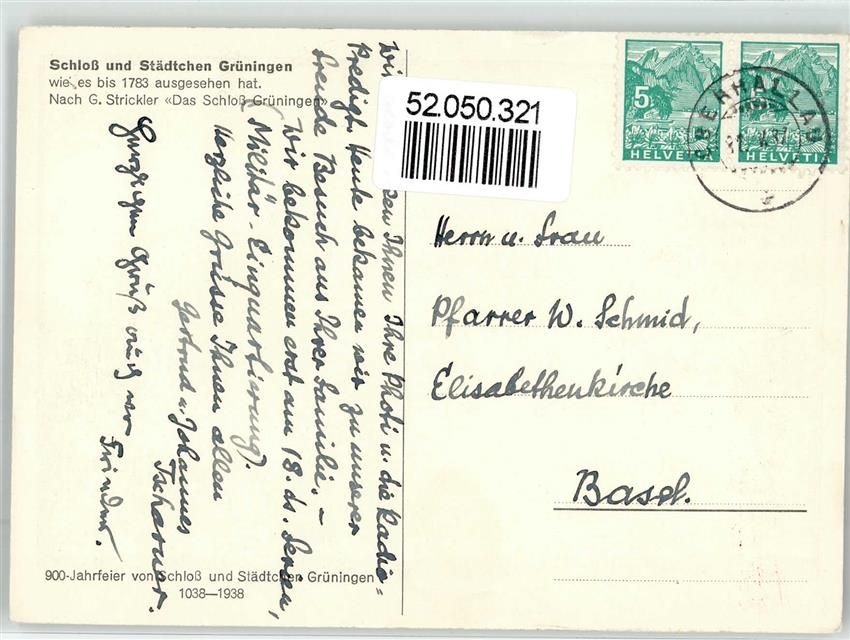 Schloß und Städtchen Grüningen
wie es bis 1783 ausgesehen hat.
Nach G. Strickler «Das Schloß Grüningen»
52.050.321
5
HELVETIA
HELVETIA
Wir Ihnen Ihre Photi u. die Radio-
Predigt. Heute bekamen wir zu unserer
Freude Besuch aus Ihrer Familie. –
Wir bekommen erst am 18. ds. Ferien,
(Militär-Einquartierung).
Herzliche Grüsse Ihnen allen
Gertrud u. Johannes
Tscharner.
Herzlichen Gruß auch von
Herrn u. Frau
Pfarrer W. Schmid,
Elisabethenkirche
Basel.
900-Jahrfeier von Schloß und Städtchen Grüningen
1038—1938